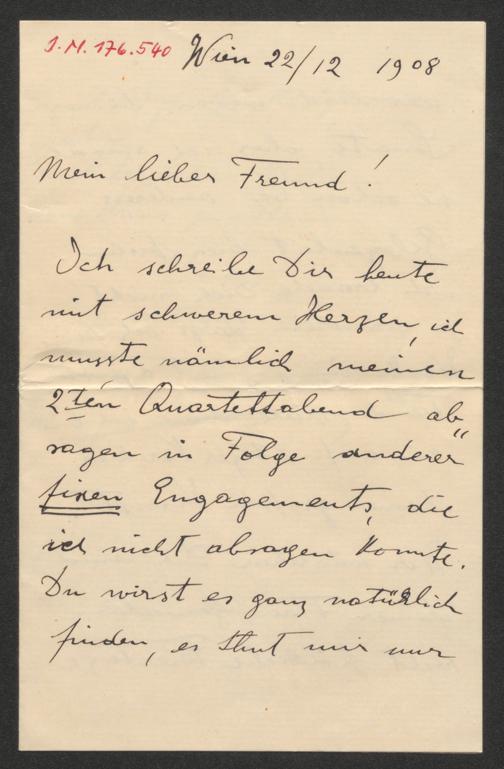 I.N. 176.540 Wien 22/12 1908
Mein lieber Freund!
Ich schreibe Dir heute
mit schwerem Herzen, ich
musste nämlich meinen
2ten Quartettabend ab„
sagen in Folge anderer
fixen Engagements, die
ich nicht absagen konnte.
Du wirst es ganz natürlich
finden, es thut mir nur